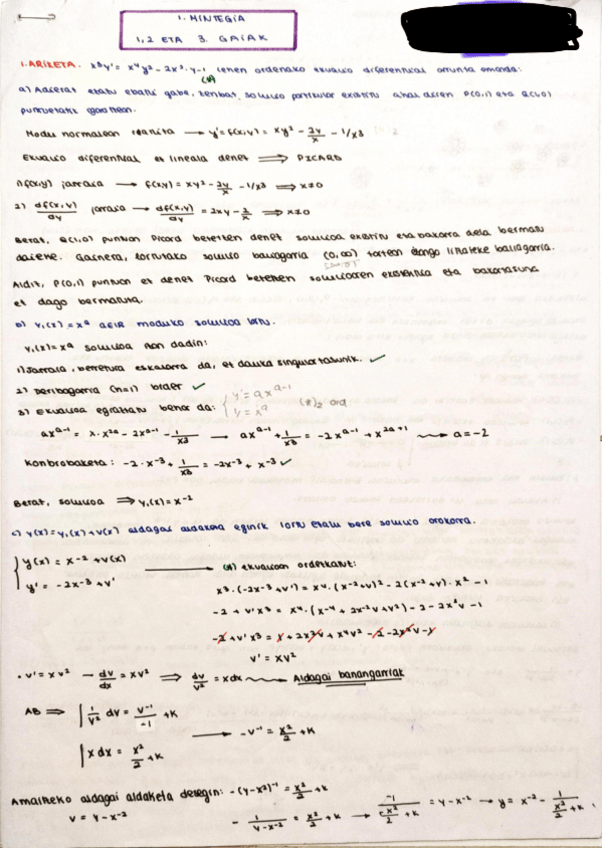 1. MINTEGIA
1,2 ETA 3. GAIAK
1. ARIKETA. x³y' = x⁴y² - 2x²·y - 1 lehen ordenako ekuazio diferentzial arrunta emanda:
(*)
a) Adierazi ebatzi gabe, zenbat soluzio partikular existitu ahal diren P(0,1) eta Q(1,0)
puntuetatik igarotzean.
Modu normalean idatzita → y' = f(x,y) = xy² - 2y/x - 1/x³
Ekuazio diferentzial ez lineala denez ⟹ PICARD
1) f(x,y) jarraia → f(x,y) = xy² - 2y/x - 1/x³ ⟹ x≠0
2) df(x,y)/dy jarraia → df(x,y)/dy = 2xy - 2/x ⟹ x≠0
Beraz, Q(1,0) puntuan Picard betetzen denez soluzioa existitu eta bakarra dela bermatu
daiteke. Gainera, lortutako soluzio baliogarria (0,∞) tartean izango litzateke baliogarria.
Aldiz, P(0,1) puntuan ez denez Picard betetzen soluzioaren existentzia eta bakartasuna
ez dago bermatuta.
b) y₁(x) = xᵃ erako soluzioa lortu.
y₁(x) = xᵃ soluzioa izan dadin:
1) Jarraia, berretura eskalarra da, ez dauka singulartasunik. ✓
2) Deribagarria (n=1) bider ✓
3) Ekuazioa egiaztatu behar da: { y' = axᵃ⁻¹
y = xᵃ
axᵃ⁻¹ = x·x²ᵃ - 2xᵃ⁻¹ - 1/x³ → axᵃ⁻¹ + 1/x³ = -2xᵃ⁻¹ + x²ᵃ⁺¹ ⟿ a = -2
Konprobaketa: -2·x⁻³ + 1/x³ = -2x⁻³ + x⁻³ ✓
Beraz, soluzioa ⟹ y₁(x) = x⁻²
c) y(x) = y₁(x) + v(x) aldagai aldaketa eginik lortu ezazu bere soluzio orokorra.
{ y(x) = x⁻² + v(x) → (*) ekuazioan ordezkatuz:
y' = -2x⁻³ + v'
x³·(-2x⁻³ + v') = x⁴·(x⁻² + v)² - 2(x⁻² + v)·x² - 1
-2 + v'x³ = x⁴·(x⁻⁴ + 2x⁻²v + v²) - 2 - 2x²v - 1
-2 + v'x³ = 1 + 2x²v + x⁴v² - 2 - 2x²v - 1
v' = xv²
• v' = xv² → dv/dx = xv² ⟹ dv/v² = xdx ⟿ Aldagai banangarriak
AB ⟹ { ∫ 1/v² dv = v⁻¹/-1 + K
∫ x dx = x²/2 + K → -v⁻¹ = x²/2 + K
Amaitzeko aldagai aldaketa desegin: -(y-x⁻²)⁻¹ = x²/2 + K
v = y - x⁻²
- 1/(y-x⁻²) = x²/2 + K → -1/(x²/2 + K) = y - x⁻² → y = x⁻² - 1/(x²/2 + K)